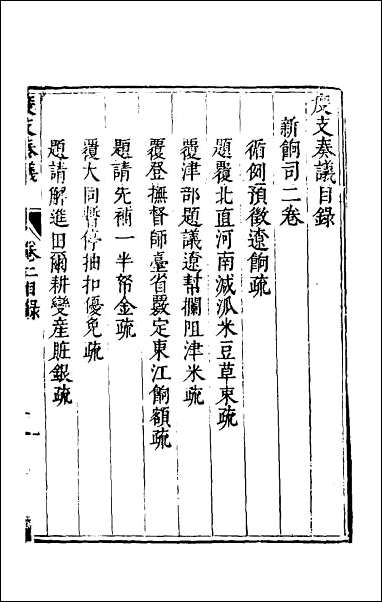 度支奏議目錄
新餉司二卷
循例預徵遼餉疏
題覆北直河南減派米豆草束疏
覆津部題議遼幫攔阻津米疏
覆登撫督師臺省數定東江餉額疏
題請先補一半帑金疏
覆大同暫停抽扣優免疏
題請解進田爾耕變産賍銀疏
度支奏議
卷二目錄
一